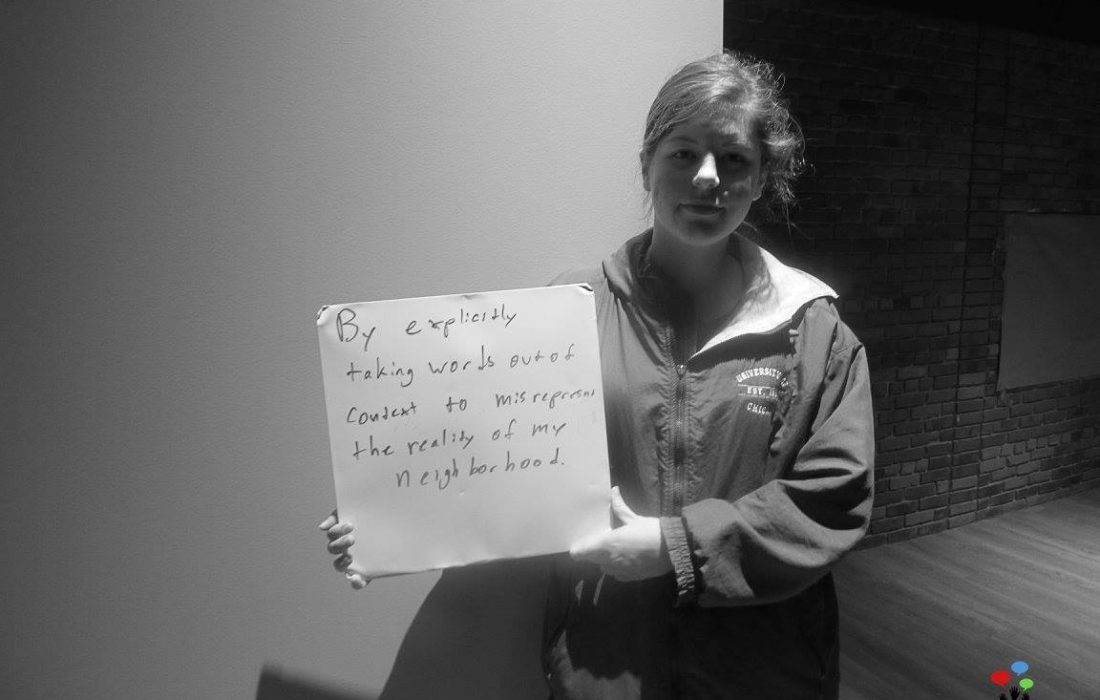 By explicitly
taking words out of
context to misrepresent
the reality of my
neighborhood.
UNIVERSITY OF
EST.
CHIC